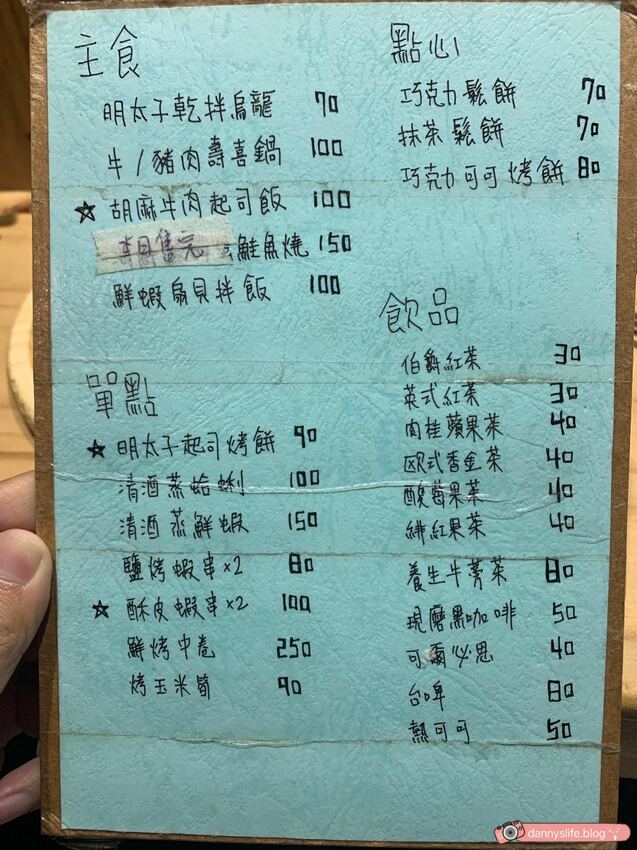 主食
明太子乾拌烏龍 70
牛/豬肉壽喜鍋 100
★ 胡麻牛肉起司飯 100
本日售完 鮭魚燒 150
鮮蝦扇貝拌飯 100
單點
★ 明太子起司烤餅 90
清酒蒸蛤蜊 100
清酒蒸鮮蝦 150
鹽烤蝦串×2 80
★ 酥皮蝦串×2 100
鮮烤中卷 250
烤玉米筍 90
點心
巧克力鬆餅 70
抹茶鬆餅 70
巧克力可可烤餅 80
飲品
伯爵紅茶 30
英式紅茶 30
肉桂蘋果茶 40
欧式香金茶 40
酸莓果茶 40
緋紅果茶 40
養生牛蒡茶 80
現磨黑咖啡 50
可爾必思 40
台啤 80
熱可可 50
dannyslife.blog